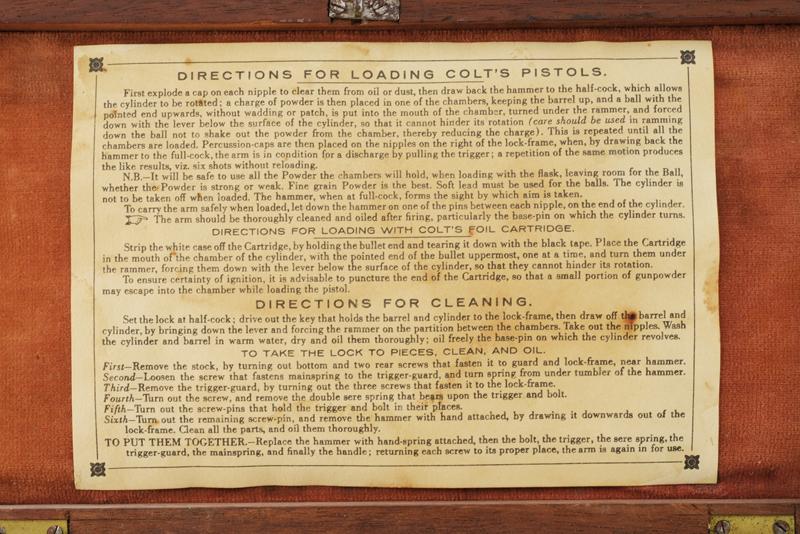 DIRECTIONS FOR LOADING COLT'S PISTOLS.
First explode a cap on each nipple to clear them from oil or dust, then draw back the hammer to the half-cock, which allows
the cylinder to be rotated; a charge of powder is then placed in one of the chambers, keeping the barrel up, and a ball with the
pointed end upwards, without wadding or patch, is put into the mouth of the chamber, turned under the rammer, and forced
down with the lever below the surface of the cylinder, so that it cannot hinder its rotation (care should be used in ramming
down the ball not to shake out the powder from the chamber, thereby reducing the charge). This is repeated until all the
chambers are loaded. Percussion-caps are then placed on the nipples on the right of the lock-frame, when, by drawing back the
hammer to the full-cock, the arm is in condition for a discharge by pulling the trigger; a repetition of the same motion produces
the like results, viz. six shots without reloading.
N.B.—It will be safe to use all the Powder the chambers will hold, when loading with the flask, leaving room for the Ball,
whether the Powder is strong or weak. Fine grain Powder is the best. Soft lead must be used for the balls. The cylinder is
not to be taken off when loaded. The hammer, when at full-cock, forms the sight by which aim is taken.
To carry the arm safely when loaded, let down the hammer on one of the pins between each nipple, on the end of the cylinder.
☞ The arm should be thoroughly cleaned and oiled after firing, particularly the base-pin on which the cylinder turns.
DIRECTIONS FOR LOADING WITH COLT'S FOIL CARTRIDGE.
Strip the white case off the Cartridge, by holding the bullet end and tearing it down with the black tape. Place the Cartridge
in the mouth of the chamber of the cylinder, with the pointed end of the bullet uppermost, one at a time, and turn them under
the rammer, forcing them down with the lever below the surface of the cylinder, so that they cannot hinder its rotation.
To ensure certainty of ignition, it is advisable to puncture the end of the Cartridge, so that a small portion of gunpowder
may escape into the chamber while loading the pistol.
DIRECTIONS FOR CLEANING.
Set the lock at half-cock; drive out the key that holds the barrel and cylinder to the lock-frame, then draw off the barrel and
cylinder, by bringing down the lever and forcing the rammer on the partition between the chambers. Take out the nipples. Wash
the cylinder and barrel in warm water, dry and oil them thoroughly; oil freely the base-pin on which the cylinder revolves.
TO TAKE THE LOCK TO PIECES, CLEAN, AND OIL.
First—Remove the stock, by turning out bottom and two rear screws that fasten it to guard and lock-frame, near hammer.
Second—Loosen the screw that fastens mainspring to the trigger-guard, and turn spring from under tumbler of the hammer.
Third—Remove the trigger-guard, by turning out the three screws that fasten it to the lock-frame.
Fourth—Turn out the screw, and remove the double sere spring that bears upon the trigger and bolt.
Fifth—Turn out the screw-pins that hold the trigger and bolt in their places.
Sixth—Turn out the remaining screw-pin, and remove the hammer with hand attached, by drawing it downwards out of the
lock-frame. Clean all the parts, and oil them thoroughly.
TO PUT THEM TOGETHER.—Replace the hammer with hand-spring attached, then the bolt, the trigger, the sere spring, the
trigger-guard, the mainspring, and finally the handle; returning each screw to its proper place, the arm is again in for use.